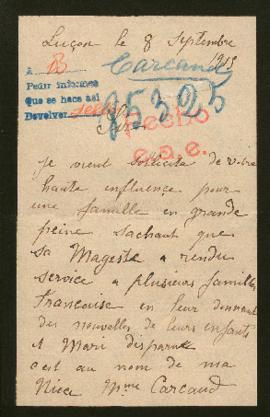 Luçon le 8 Septembre
1915
Carcaud
A B
Pedir informes
Que se haga así
Devolver
95325
Sire
Hecho
c.a.e.
Je vient sollicité de votre
haute influence pour
une famille en grande
peine sachant que
sa Magesté a rendu
service a plusieurs familles
Francaise en leur donnant
des nouvelles de leurs enfants
et Mari disparut
c'est au nom de ma
Niece Mme Carcaud